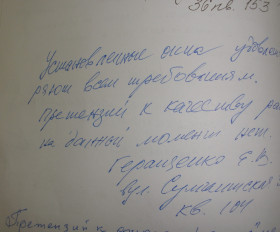 36 кв. 153
Установленные окна удовлетво
ряют всем требованиям,
претензий к качеству ра
на данный момент нет.
Геращенко Г.В.
вул.
кв. 104
Претензий к